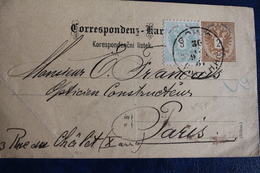 Correspondenz-Kar
Korespondenční lístek.
Monsieur O. Français
Opticien Constructeur
Paris
3 Rue du Châlet